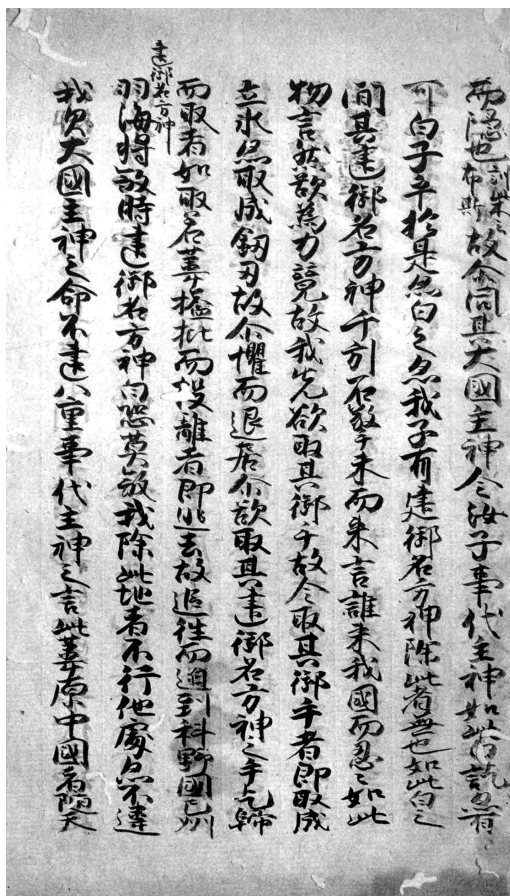 而隠也訓柴云布斯故尒問其大國主神今汝子事代主神如此白訖亦有
可白子乎於是亦白之亦我子有建御名方神除此者無也如此白之
間其建御名方神千引石敬手末而来言誰来我國而忍〻如此
物言然欲為力競故我先欲取其御手故令取其御手者即取成
立氷亦取成釼刃故尒懼而退居尒欲取其建御名方神之手乞歸
而取者如取若葦搤批而投離者即逃去故追往而迫到科野國之州
羽海將敬時建御名方神白恐莫敬我除此地者不行他處亦不違
建御名方神
我父大國主神之命不違八重事代主神之言此葦原中國者隨天